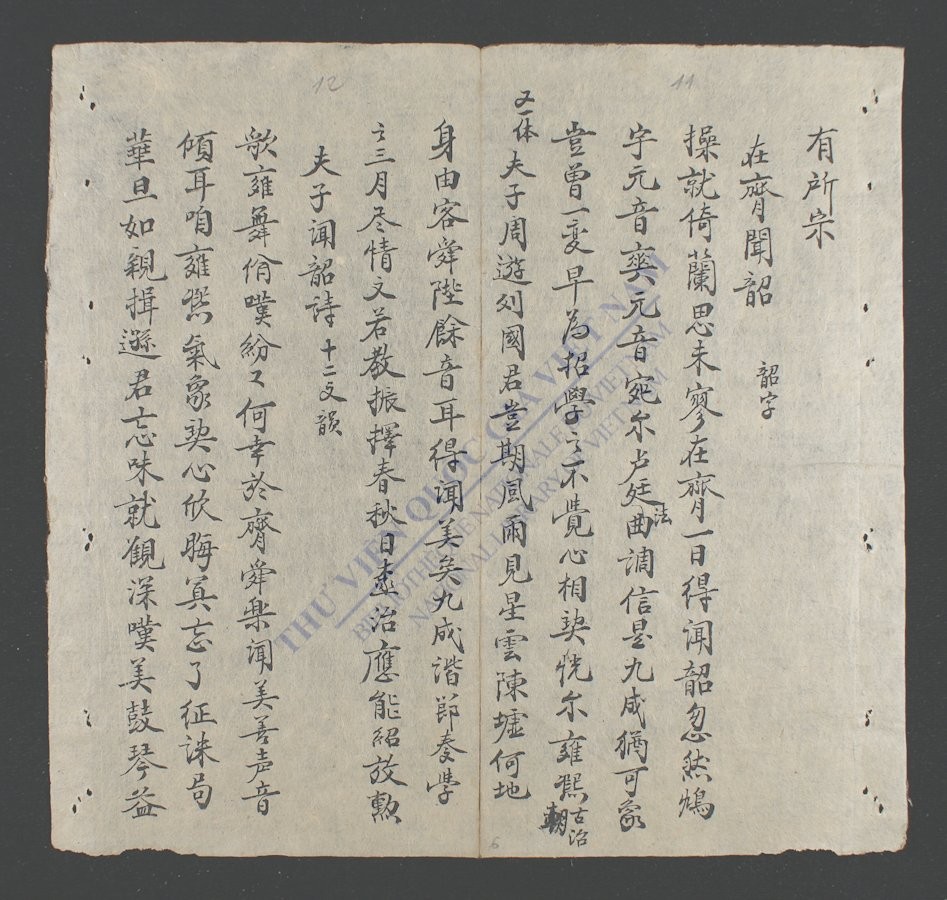 11
有所宗
在齊聞韶 韶字
操就倚蘭思未寥在齊一日得闻韶忽然鳩
宇元音奭元音宛尔卢廷曲调信是九成猶可象
法
豈曾一变早為招學之不覺心相契恍尔雍熙古治
朝
又一体 夫子周遊列國君豈期風雨見星雲陳墟何地
身由客舜陛餘音耳得闻美矣九成谐節奏学
之三月尽情文若教振擇春秋日治應能紹放勲
12
夫子闻韶詩 十二文韻
歌雍舞佾嘆紛々何幸於齊舜樂闻美善声音
傾耳咱雍熙氣象契心欣晦冥忘了征誅局
華旦如親揖遜君忘味就觀深嘆美鼓琴益
6
THƯ VIỆN QUỐC GIA VIỆT NAM
BIBLIOTHÈQUE NATIONALE DU VIETNAM
NATIONAL LIBRARY OF VIETNAM